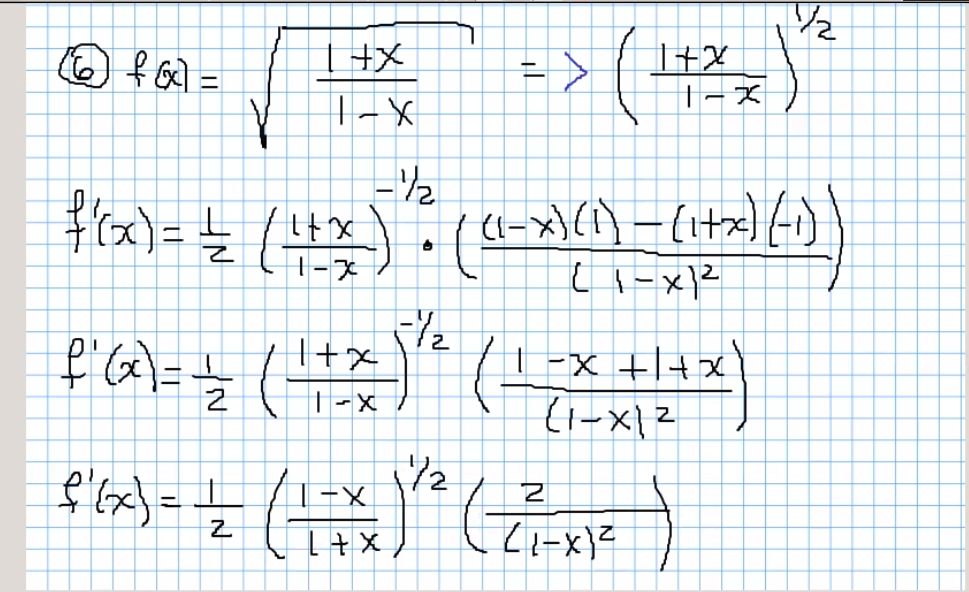 ⑥ f(x) = √((1+x)/(1-x)) => ((1+x)/(1-x))^(1/2)
f'(x) = 1/2 ((1+x)/(1-x))^(-1/2) · (((1-x)(1) - (1+x)(-1))/((1-x)^2))
f'(x) = 1/2 ((1+x)/(1-x))^(-1/2) ((1-x+1+x)/((1-x)^2))
f'(x) = 1/2 ((1-x)/(1+x))^(1/2) (2/((1-x)^2))